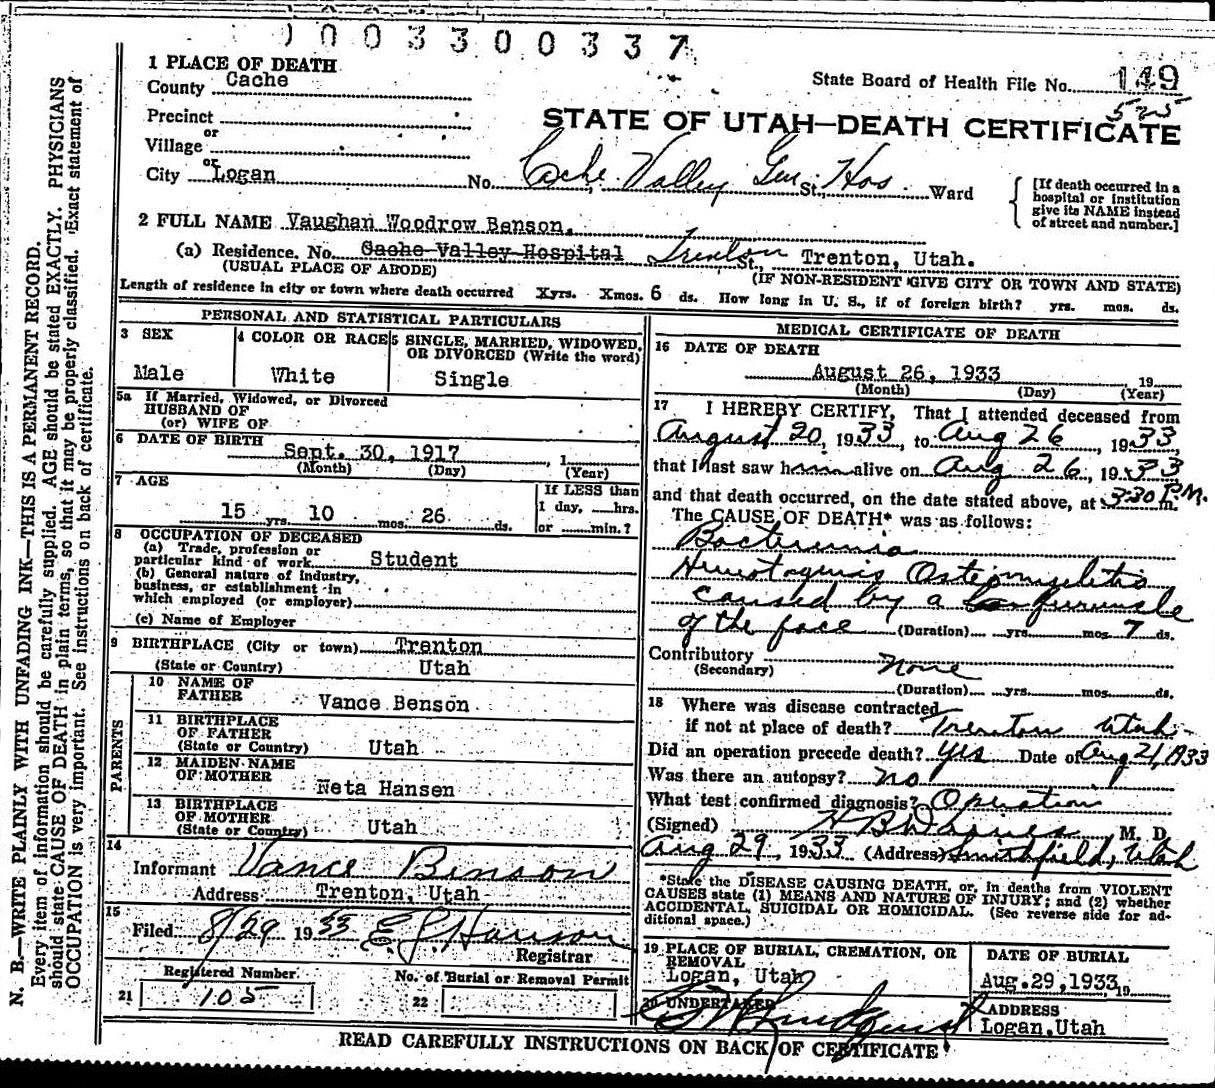 1003300337
1 PLACE OF DEATH
County Cache
State Board of Health File No. 149
525
Precinct
or
Village
or
City Logan
STATE OF UTAH—DEATH CERTIFICATE
No. Cache Valley Gen. Hos. St., Ward
[If death occurred in a hospital or institution give its NAME instead of street and number.]
2 FULL NAME Vaughan Woodrow Benson.
(a) Residence. No. Cache Valley Hospital Trenton St., Trenton, Utah.
(USUAL PLACE OF ABODE) (IF NON-RESIDENT GIVE CITY OR TOWN AND STATE)
Length of residence in city or town where death occurred Xyrs. Xmos. 6 ds. How long in U. S., if of foreign birth? yrs. mos. ds.
PERSONAL AND STATISTICAL PARTICULARS
3 SEX
Male
4 COLOR OR RACE
White
5 SINGLE, MARRIED, WIDOWED, OR DIVORCED (Write the word)
Single
5a If Married, Widowed, or Divorced
HUSBAND OF
(or) WIFE OF
6 DATE OF BIRTH
Sept. 30, 1917 , 1
(Month) (Day) (Year)
7 AGE
15 yrs. 10 mos. 26 ds.
If LESS than
1 day, hrs.
or min.?
8 OCCUPATION OF DECEASED
(a) Trade, profession or
particular kind of work Student
(b) General nature of industry,
business, or establishment in
which employed (or employer)
(c) Name of Employer
9 BIRTHPLACE (City or town) Trenton
(State or Country) Utah
PARENTS
10 NAME OF
FATHER Vance Benson
11 BIRTHPLACE
OF FATHER
(State or Country) Utah
12 MAIDEN NAME
OF MOTHER Neta Hansen
13 BIRTHPLACE
OF MOTHER
(State or Country) Utah
14
Informant Vance Benson
Address Trenton, Utah
15
Filed 8/29 1933
Registrar
Registered Number
21 105
No. of Burial or Removal Permit
22
MEDICAL CERTIFICATE OF DEATH
16 DATE OF DEATH
August 26, 1933 19
(Month) (Day) (Year)
17 I HEREBY CERTIFY, That I attended deceased from
August 20, 1933, to Aug 26, 1933,
that I last saw h alive on Aug 26, 1933
and that death occurred, on the date stated above, at 3:30 P.M. m.
The CAUSE OF DEATH* was as follows:
Bacteremia
Osteomyelitis
caused by a furuncle
of the face (Duration) yrs. mos. 7 ds.
Contributory
(Secondary) None
(Duration) yrs. mos. ds.
18 Where was disease contracted
if not at place of death? Trenton Utah
Did an operation precede death? yes Date of Aug 21, 1933
Was there an autopsy? no
What test confirmed diagnosis? Operation
(Signed) M. D.
Aug 29, 1933 (Address) Smithfield, Utah
*State the DISEASE CAUSING DEATH, or, in deaths from VIOLENT
CAUSES state (1) MEANS AND NATURE OF INJURY; and (2) whether
ACCIDENTAL, SUICIDAL OR HOMICIDAL. (See reverse side for ad-
ditional space.)
19 PLACE OF BURIAL, CREMATION, OR
REMOVAL
Logan, Utah
DATE OF BURIAL
Aug. 29, 1933 19
20 UNDERTAKER
ADDRESS
Logan, Utah
READ CAREFULLY INSTRUCTIONS ON BACK OF CERTIFICATE
N. B.—WRITE PLAINLY WITH UNFADING INK—THIS IS A PERMANENT RECORD.
Every item of information should be carefully supplied. AGE should be stated EXACTLY. PHYSICIANS
should state CAUSE OF DEATH in plain terms, so that it may be properly classified. Exact statement of
OCCUPATION is very important. See instructions on back of certificate.